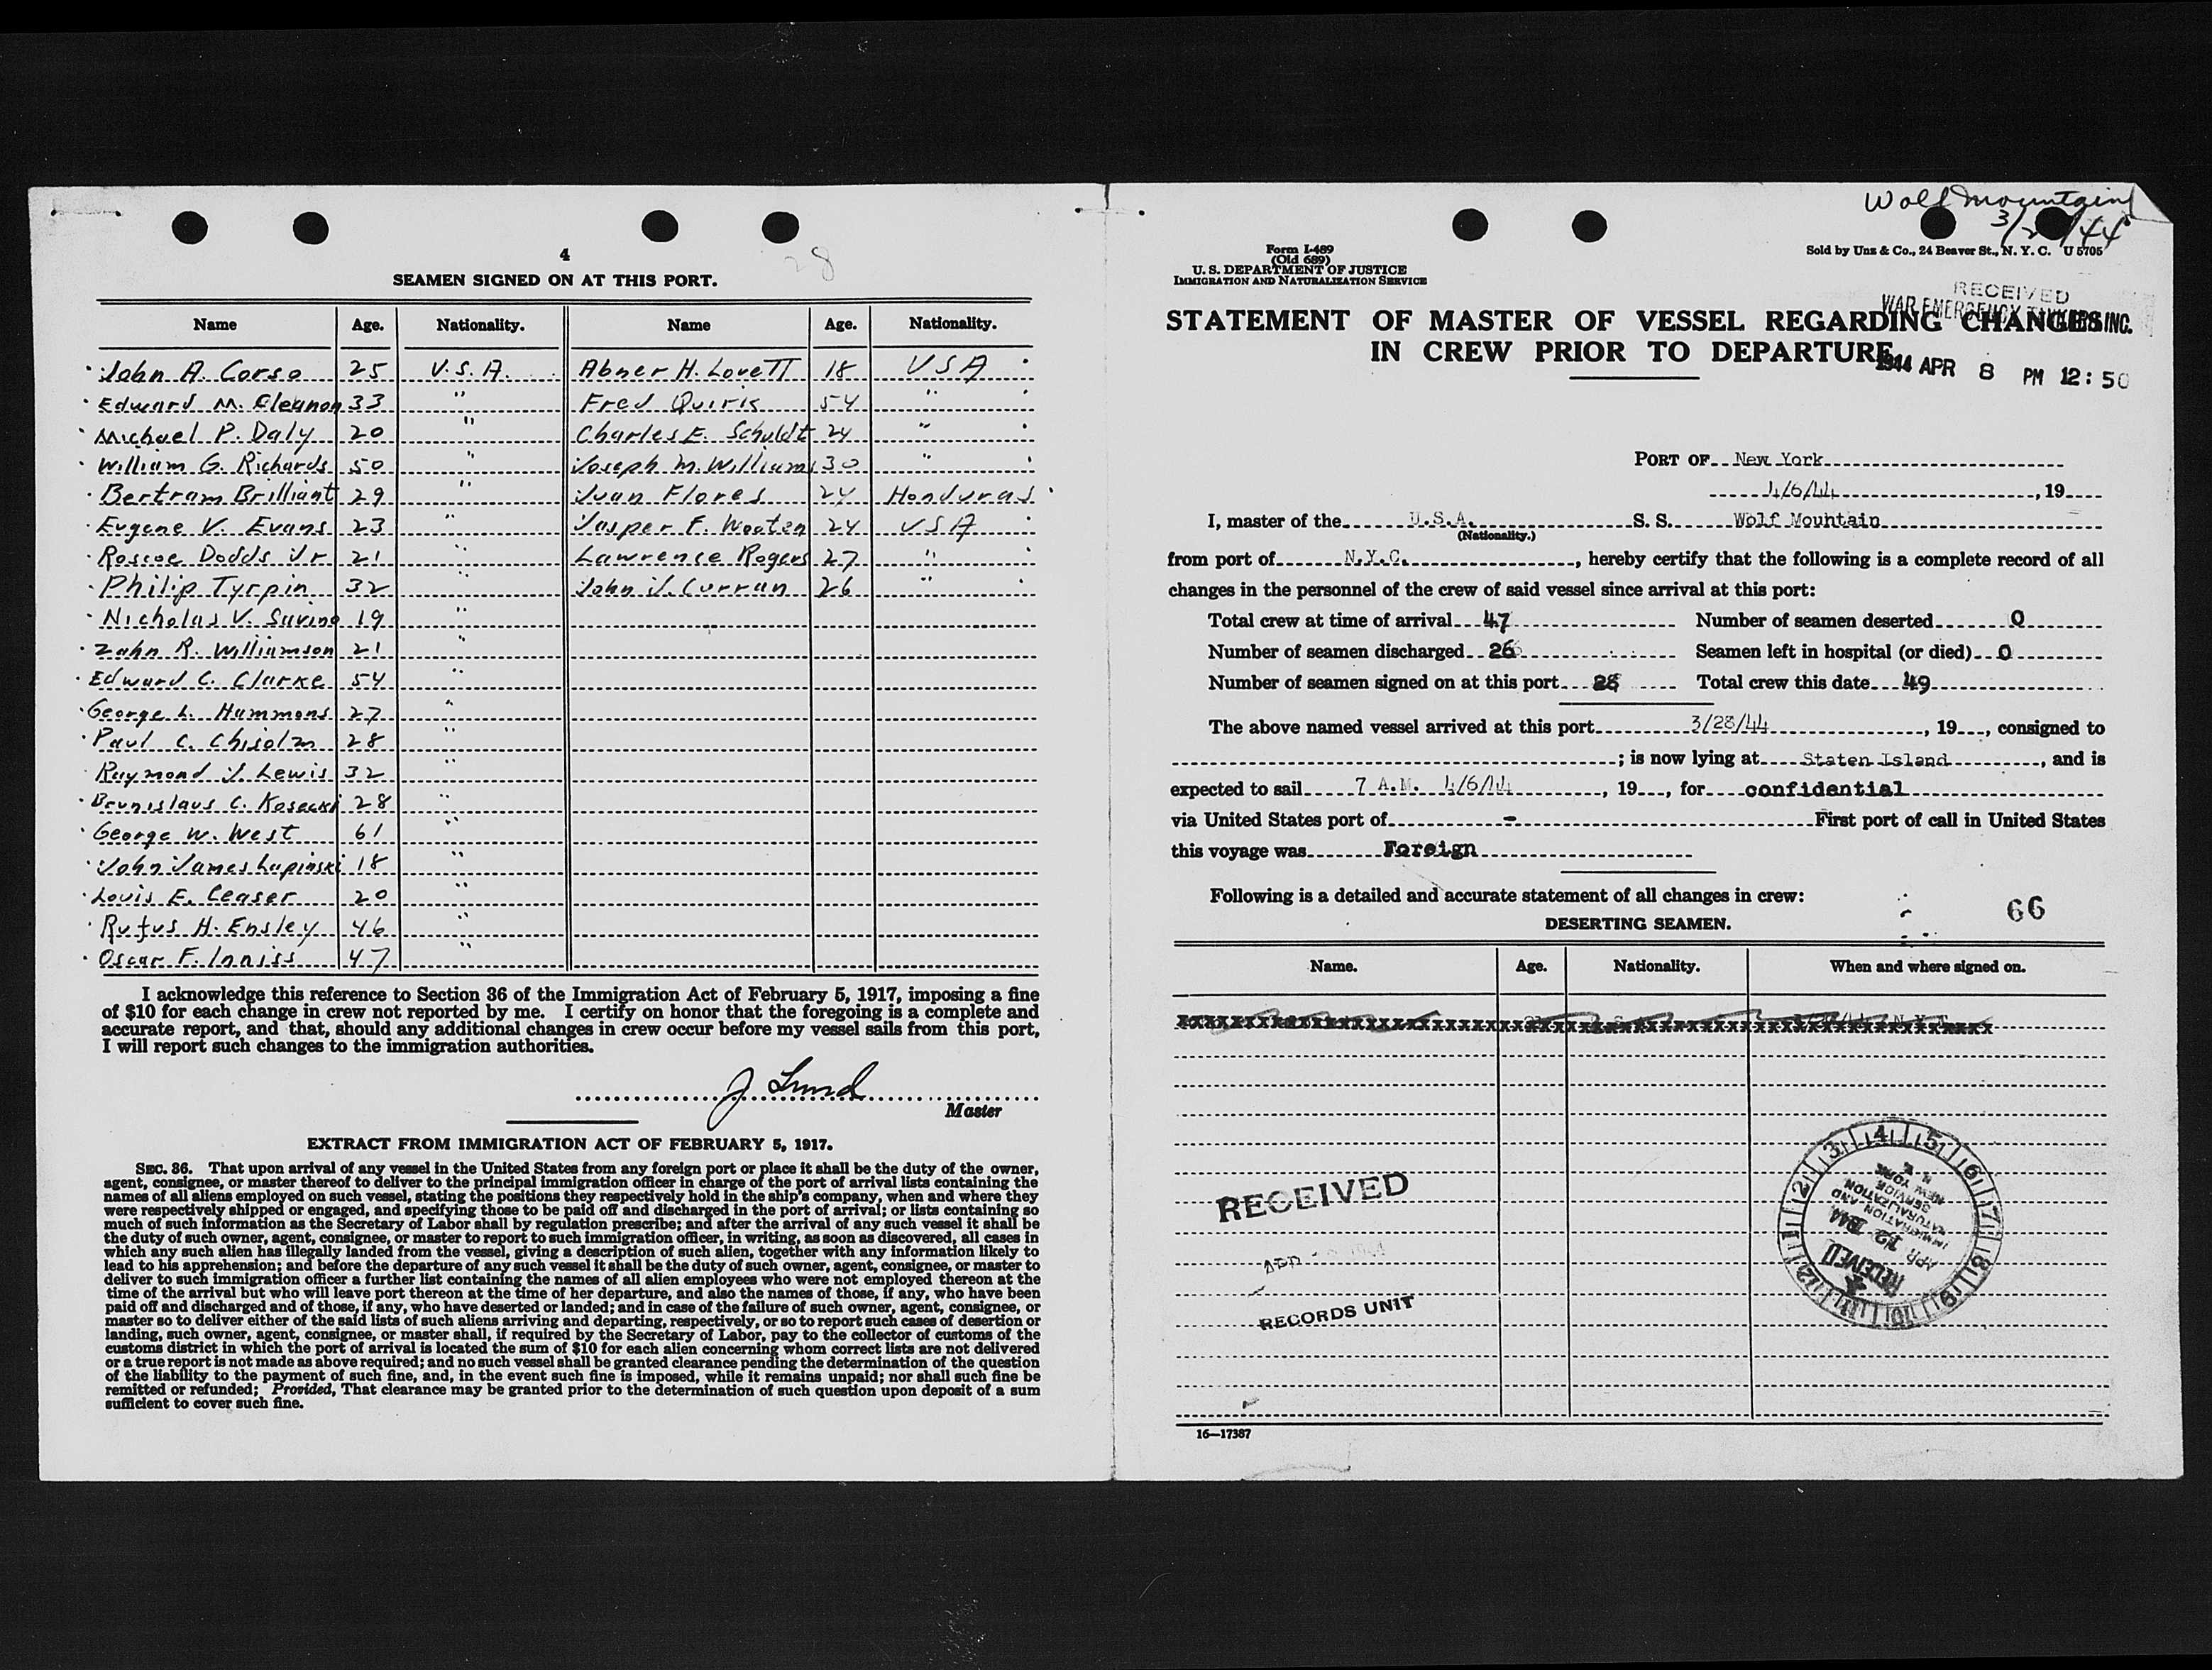 4
28
SEAMEN SIGNED ON AT THIS PORT.
Name Age. Nationality. Name Age. Nationality.
John A. Corso 25 U.S.A. Abner H. Lovett 18 USA
Edward M. Gleanon 33 " Fred Quiris 54 "
Michael P. Daly 20 " Charles E. Schuldt 24 "
William G. Richards 50 " Joseph M. Williams 30 "
Bertram Brilliant 29 " Juan Flores 24 Honduras
Eugene V. Evans 23 " Jasper F. Wooten 24 USA
Roscoe Dodds Jr 21 " Lawrence Rogers 27 "
Philip Tyrpin 32 " John J. Curran 26 "
Nicholas V. Savino 19 "
Zahn R. Williamson 21 "
Edward C. Clarke 54 "
George L. Hammons 27 "
Paul C. Chisolm 28 "
Raymond J. Lewis 32 "
Brunislaus C. Kosecki 28 "
George W. West 61 "
John James Lapinski 18 "
Louis E. Ceaser 20 "
Rufus H. Ensley 46 "
Oscar F. Inniss 47 "
I acknowledge this reference to Section 36 of the Immigration Act of February 5, 1917, imposing a fine
of $10 for each change in crew not reported by me. I certify on honor that the foregoing is a complete and
accurate report, and that, should any additional changes in crew occur before my vessel sails from this port,
I will report such changes to the immigration authorities.
J Lund
Master
EXTRACT FROM IMMIGRATION ACT OF FEBRUARY 5, 1917.
SEC. 36. That upon arrival of any vessel in the United States from any foreign port or place it shall be the duty of the owner,
agent, consignee, or master thereof to deliver to the principal immigration officer in charge of the port of arrival lists containing the
names of all aliens employed on such vessel, stating the positions they respectively hold in the ship's company, when and where they
were respectively shipped or engaged, and specifying those to be paid off and discharged in the port of arrival; or lists containing so
much of such information as the Secretary of Labor shall by regulation prescribe; and after the arrival of any such vessel it shall be
the duty of such owner, agent, consignee, or master to report to such immigration officer, in writing, as soon as discovered, all cases in
which any such alien has illegally landed from the vessel, giving a description of such alien, together with any information likely to
lead to his apprehension; and before the departure of any such vessel it shall be the duty of such owner, agent, consignee, or master to
deliver to such immigration officer a further list containing the names of all alien employees who were not employed thereon at the
time of the arrival but who will leave port thereon at the time of her departure, and also the names of those, if any, who have been
paid off and discharged and of those, if any, who have deserted or landed; and in case of the failure of such owner, agent, consignee, or
master so to deliver either of the said lists of such aliens arriving and departing, respectively, or so to report such cases of desertion or
landing, such owner, agent, consignee, or master shall, if required by the Secretary of Labor, pay to the collector of customs of the
customs district in which the port of arrival is located the sum of $10 for each alien concerning whom correct lists are not delivered
or a true report is not made as above required; and no such vessel shall be granted clearance pending the determination of the question
of the liability to the payment of such fine, and, in the event such fine is imposed, while it remains unpaid; nor shall such fine be
remitted or refunded; Provided, That clearance may be granted prior to the determination of such question upon deposit of a sum
sufficient to cover such fine.
Wolf Mountain
3/2 /44
Form I-489
(Old 689)
U. S. DEPARTMENT OF JUSTICE
IMMIGRATION AND NATURALIZATION SERVICE
Sold by Unz & Co., 24 Beaver St., N. Y. C. U 5705
RECEIVED
WAR EMERGENCY TANKERS INC.
1944 APR 8 PM 12:50
STATEMENT OF MASTER OF VESSEL REGARDING CHANGES
IN CREW PRIOR TO DEPARTURE
PORT OF New York
4/6/44, 19
I, master of the U.S.A. S. S. Wolf Mountain
(Nationality.)
from port of N.Y.C., hereby certify that the following is a complete record of all
changes in the personnel of the crew of said vessel since arrival at this port:
Total crew at time of arrival 47 Number of seamen deserted 0
Number of seamen discharged 26 Seamen left in hospital (or died) 0
Number of seamen signed on at this port 28 Total crew this date 49
The above named vessel arrived at this port 3/28/44, 19, consigned to
; is now lying at Staten Island, and is
expected to sail 7 A.M. 4/6/44, 19, for confidential
via United States port of - First port of call in United States
this voyage was Foreign
Following is a detailed and accurate statement of all changes in crew:
66
DESERTING SEAMEN.
Name. Age. Nationality. When and where signed on.
RECEIVED
APR
RECORDS UNIT
1 2 3 4 5 6 7 8 9 10 11 12
IMMIGRATION AND
NATURALIZATION
SERVICE
NEW YORK
N. Y.
APR 12 1944
RECEIVED
16—17387